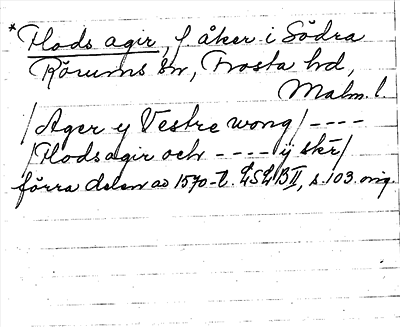 *Plods agir, f. åker i Södra
Rörums sn, Frosta hd,
Malm. l.
/Ager y Vestre wong/ ----
/Plodsagir och ---- ij skr/
förra delen av 1570-t. LSLB II, s. 103. orig.